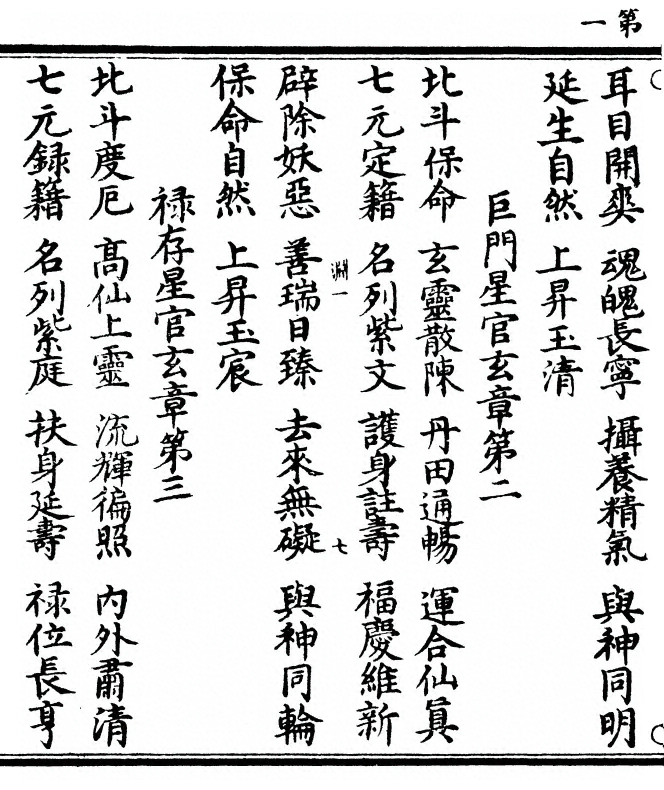 第一
耳目開爽　魂魄長寧　攝養精氣　與神同明
延生自然　上昇玉清
巨門星官玄章第二
北斗保命　玄靈散陳　丹田通暢　運合仙真
七元定籍　名列紫文　護身註壽　福慶維新
淵一　七
辟除妖惡　善瑞日臻　去來無礙　與神同輪
保命自然　上昇玉宸
禄存星官玄章第三
北斗度厄　高仙上靈　流輝徧照　內外肅清
七元録籍　名列紫庭　扶身延壽　禄位長亨